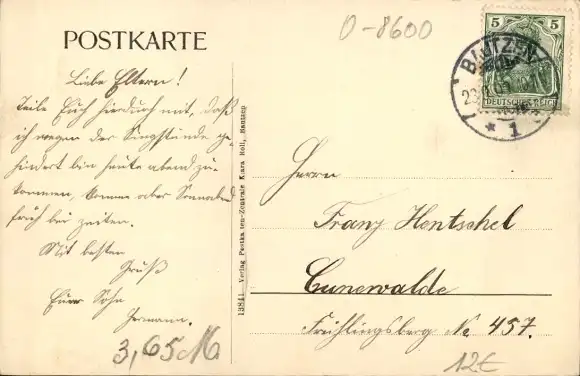 O-8600
POSTKARTE
5 5
DEUTSCHES REICH
BAUTZEN
* 1
Liebe Eltern!
Teile Euch hierdurch mit, daß
ich wegen der Singstunde ge-
hindert bin heute abend zu
kommen, komme aber Sonnabend
früh bei zeiten.
Mit besten
Gruß
Euer Sohn
Hermann.
13841 Verlag Postkarten-Zentrale Klara Holl, Bautzen
Herrn
Franz Hentschel
Cunewalde
Frühlingsberg No 457.
3,65M
12€